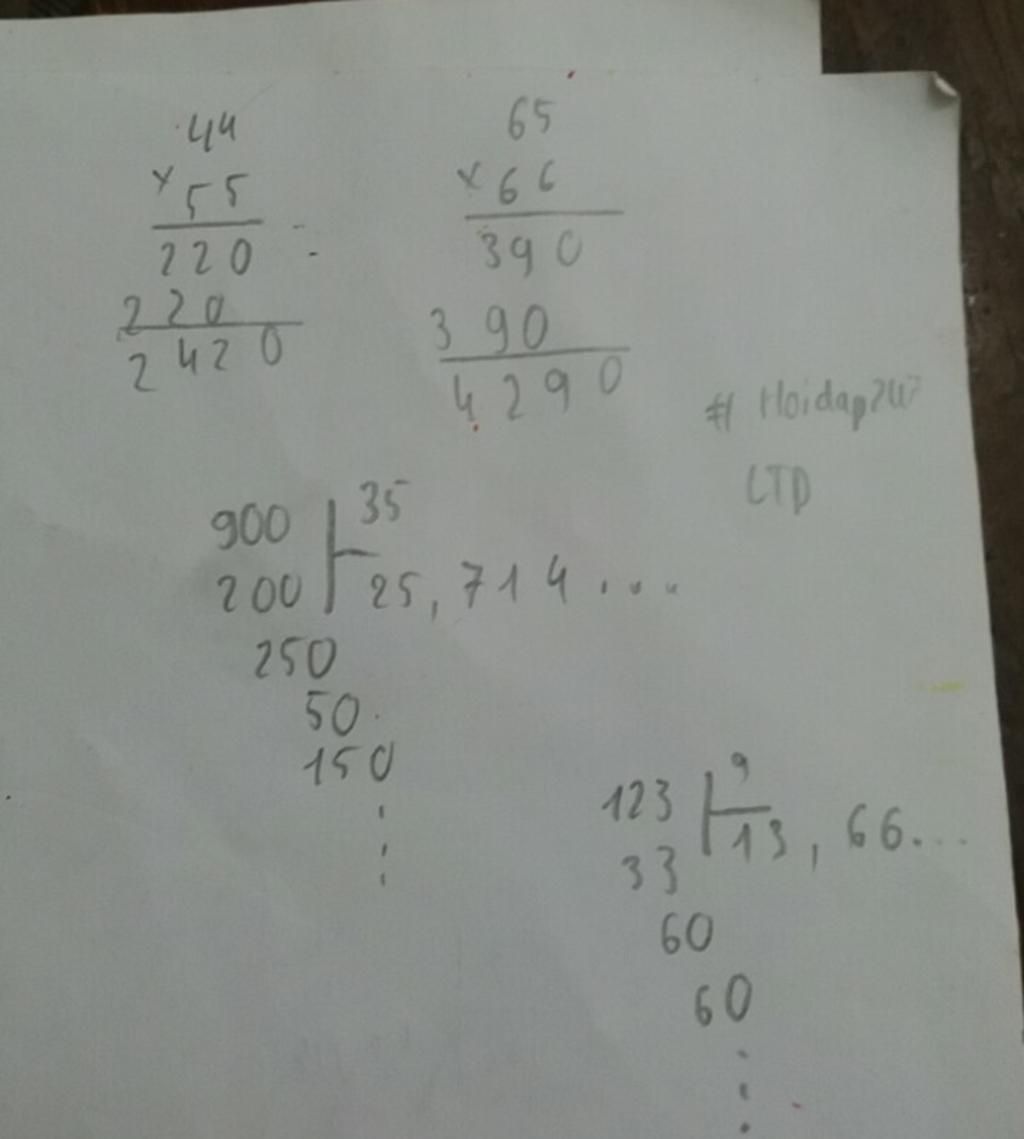 44
× 55
220
220
2420
65
× 66
390
390
4290
# Hoidap247
LTD
900 35
200 25,714...
250
50
150
123 9
33 13,66...
60
60